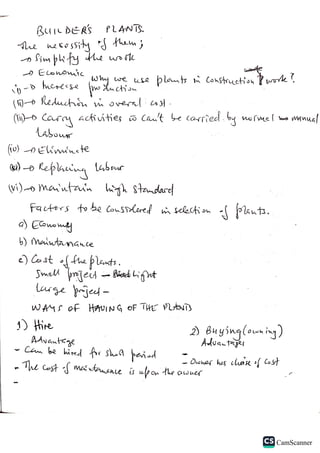 BUILDERS PLANTS.
The necessity of them;
→ Simplify the work
→ Economic
Why we use plants in construction work?
(i) → Increase production
(ii) → Reduction in overal cost.
(iii) → Carry activities can't be carried by normel manual
labour
(iv) → Eliminate
(v) → Replacing labour
(vi) → maintain high standard
Factors to be considered in selection of plants.
a) Economy
b) Maintanance
c) Cost of the plants.
Small project - light
Large project -
WAYS OF HAVING OF THE PLANTS
1) Hire
Advantage
- Can be hired for short period
- The cost of maintenance is upon the owner
-
2) Buying (owning)
Advantages
- Owner has choice of cost
CS CamScanner